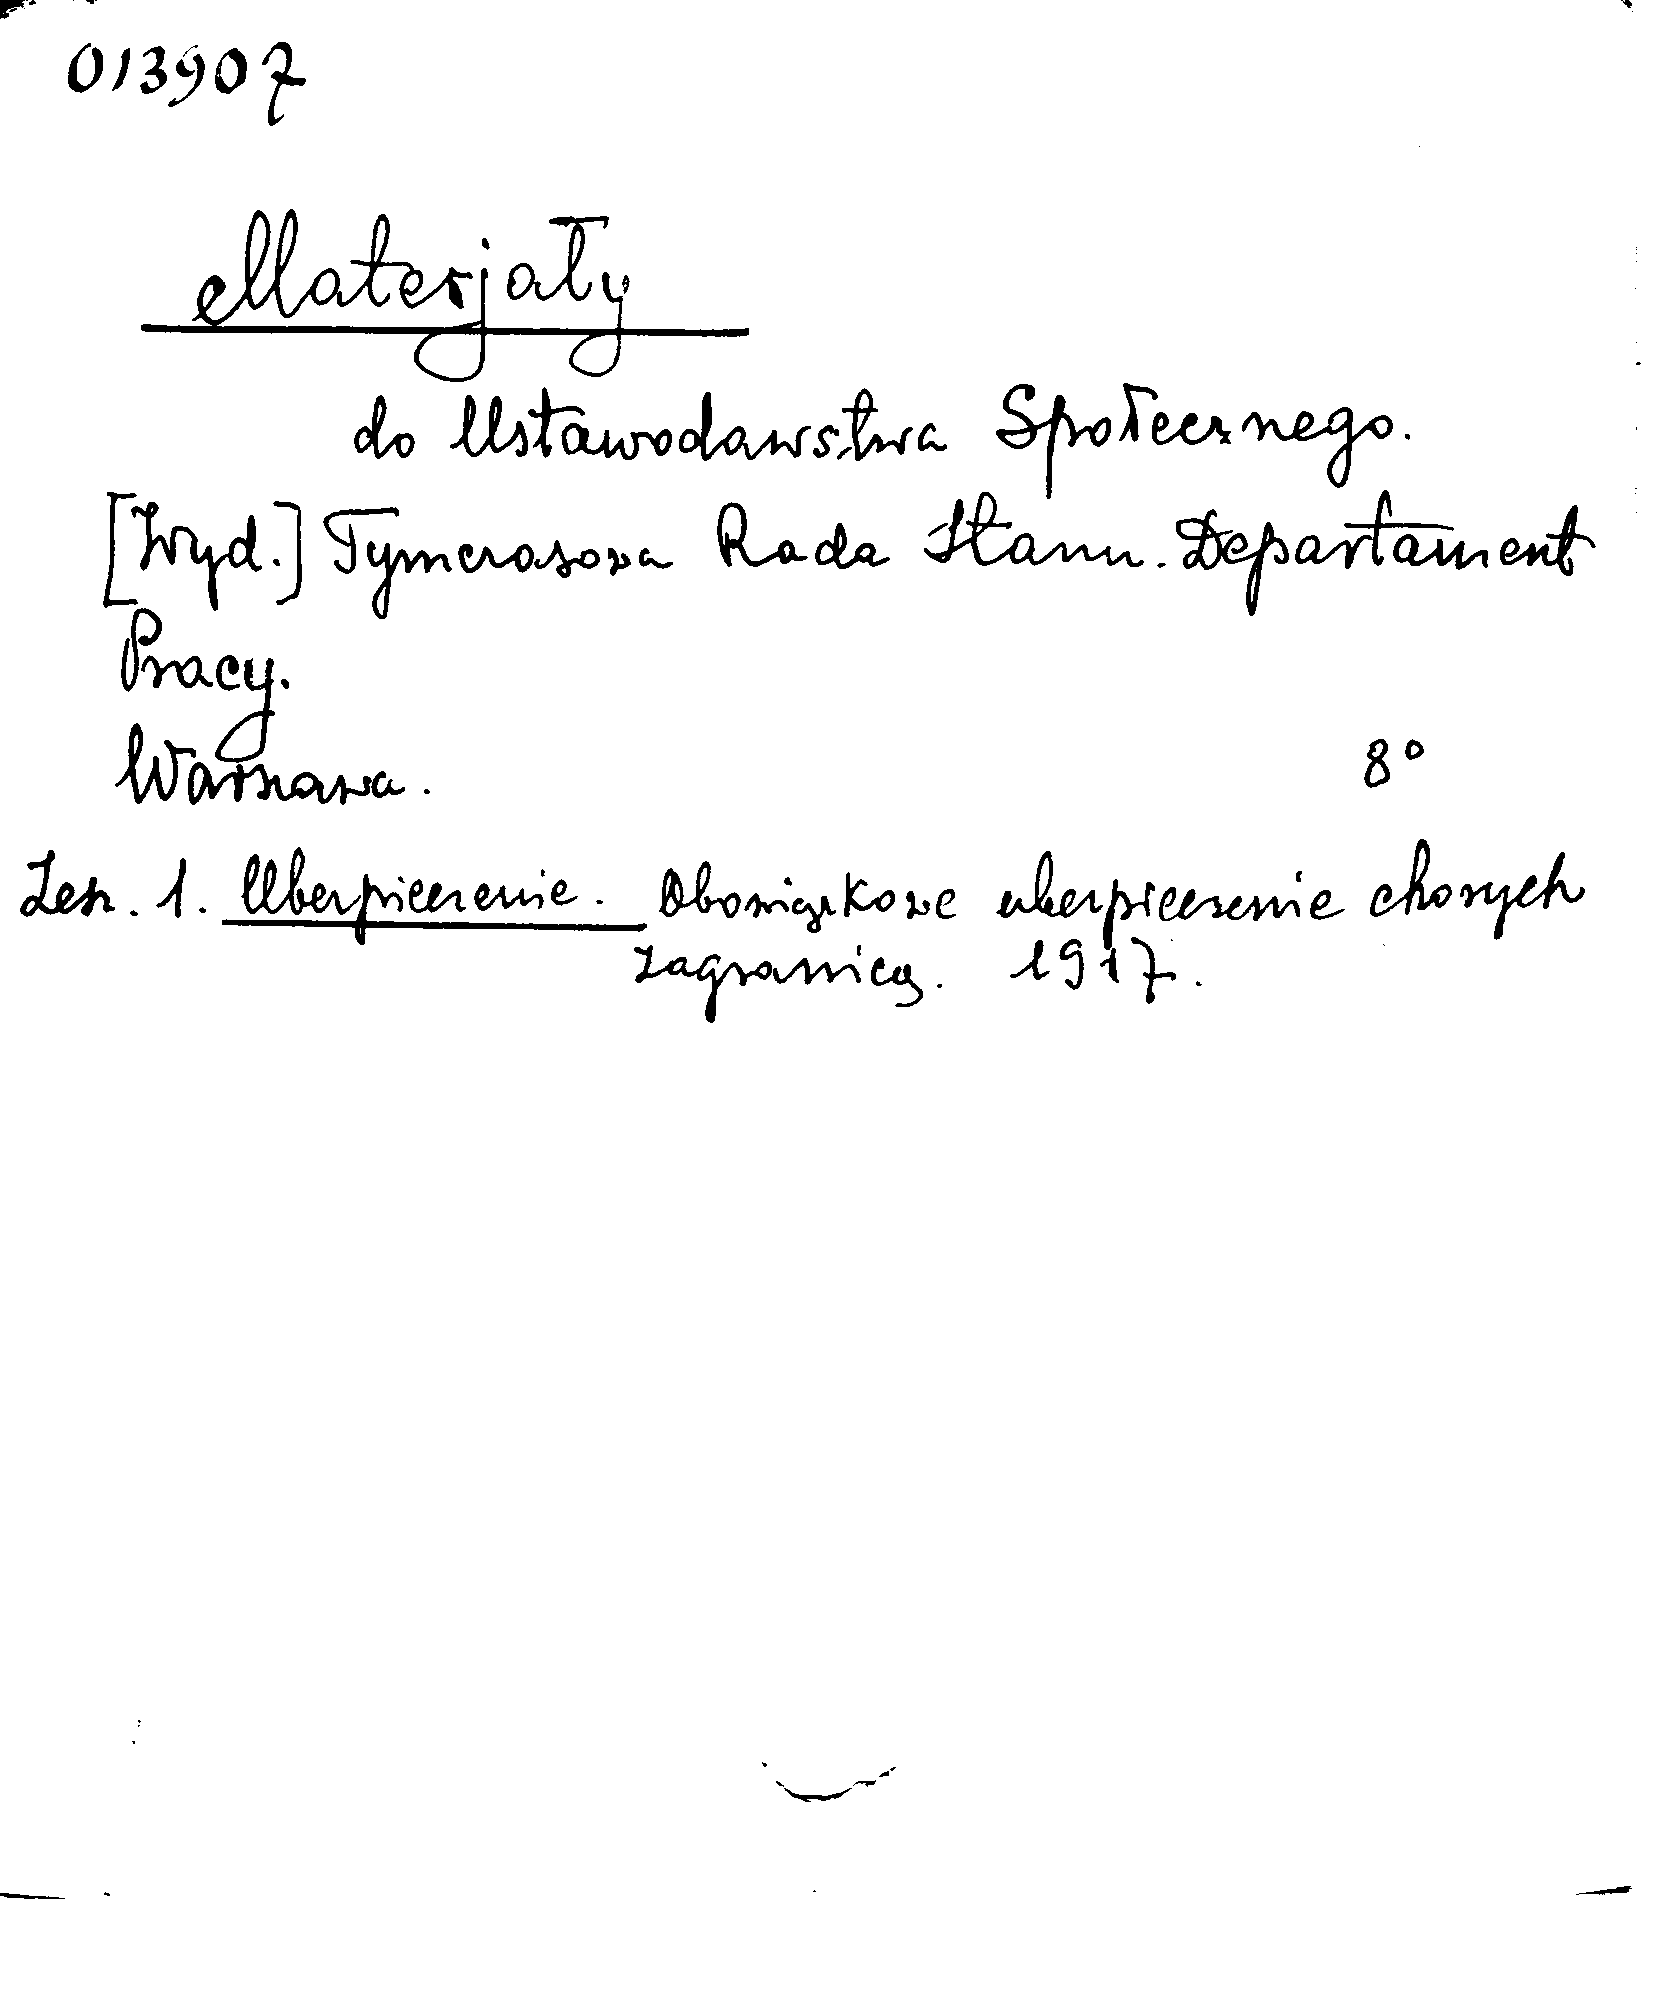 013907
Materjały
do Ustawodawstwa Społecznego.
[Wyd.] Tymczasowa Rada Stanu. Departament
Pracy.
Warszawa. 8°
Zesz. 1. Ubezpieczenie. Obowiązkowe ubezpieczenie chorych
zagranicą. 1917.